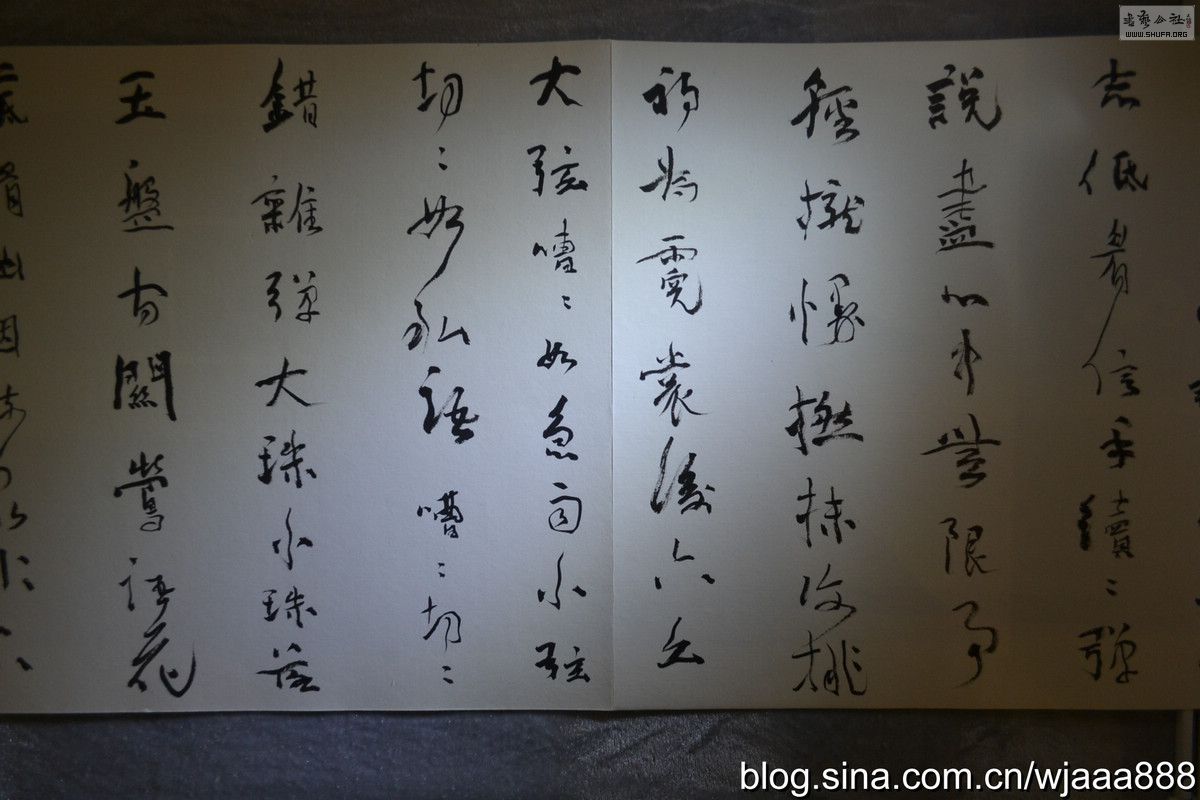 志低眉信手續〻彈
說盡心中無限事
輕攏慢撚抹復挑
初為霓裳後六幺
大弦嘈〻如急雨小弦
切〻如私語嘈〻切〻
錯雜彈大珠小珠落
玉盤间關鶯語花
書藝公社
WWW.SHUFA.ORG
blog.sina.com.cn/wjaaa888